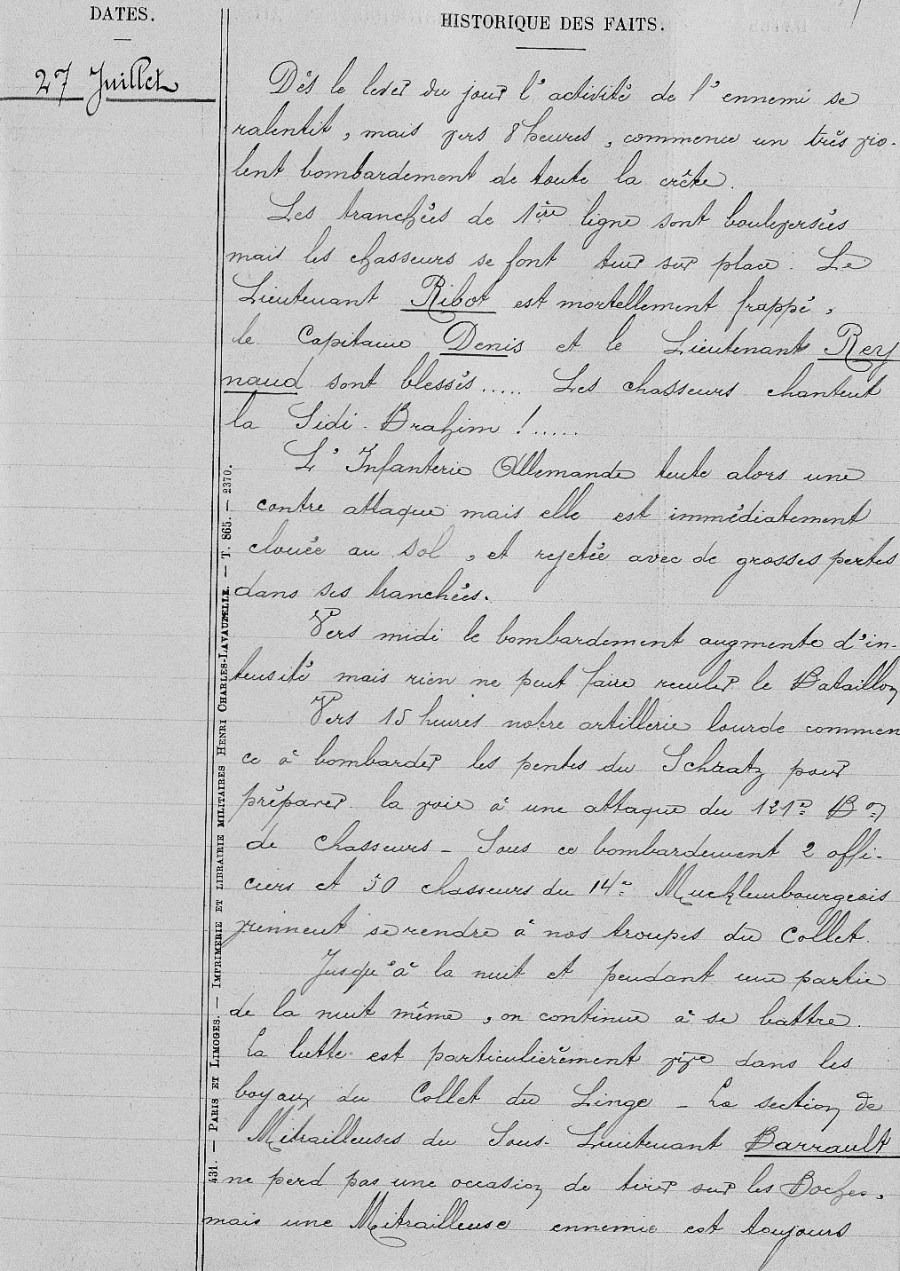 DATES.
HISTORIQUE DES FAITS.
27 Juillet
Dès le lever du jour l'activité de l'ennemi se
ralentit, mais vers 8 heures, commence un très vio-
lent bombardement de toute la crête.
Les tranchées de 1ère ligne sont bouleversées
mais les chasseurs se font tuer sur place. Le
Lieutenant Ribot est mortellement frappé,
le Capitaine Denis et le Lieutenant Rey
naud sont blessés..... Les chasseurs chantent
la Sidi-Brahim !.....
L'Infanterie Allemande tente alors une
contre attaque mais elle est immédiatement
clouée au sol, et rejetée avec de grosses pertes
dans ses tranchées.
Vers midi le bombardement augmente d'in-
tensité mais rien ne peut faire reculer le Bataillon
Vers 15 heures notre artillerie lourde commen
ce à bombarder les pentes du Schratz pour
préparer la voie à une attaque du 121e Bon
de chasseurs - Sous ce bombardement 2 offi-
ciers et 50 chasseurs du 14e Mucklembourgeois
viennent se rendre à nos troupes du Collet.
Jusqu'à la nuit et pendant une partie
de la nuit même, on continue à se battre.
La lutte est particulièrement vive dans les
boyaux du Collet du Linge - La section de
Mitrailleuses du Sous-Lieutenant Barrault
ne perd pas une occasion de tirer sur les Boches,
mais une Mitrailleuse ennemie est toujours
431. — PARIS ET LIMOGES. — IMPRIMERIE ET LIBRAIRIE MILITAIRES HENRI CHARLES-LAVAUZELLE. — T. 865. — 2370.